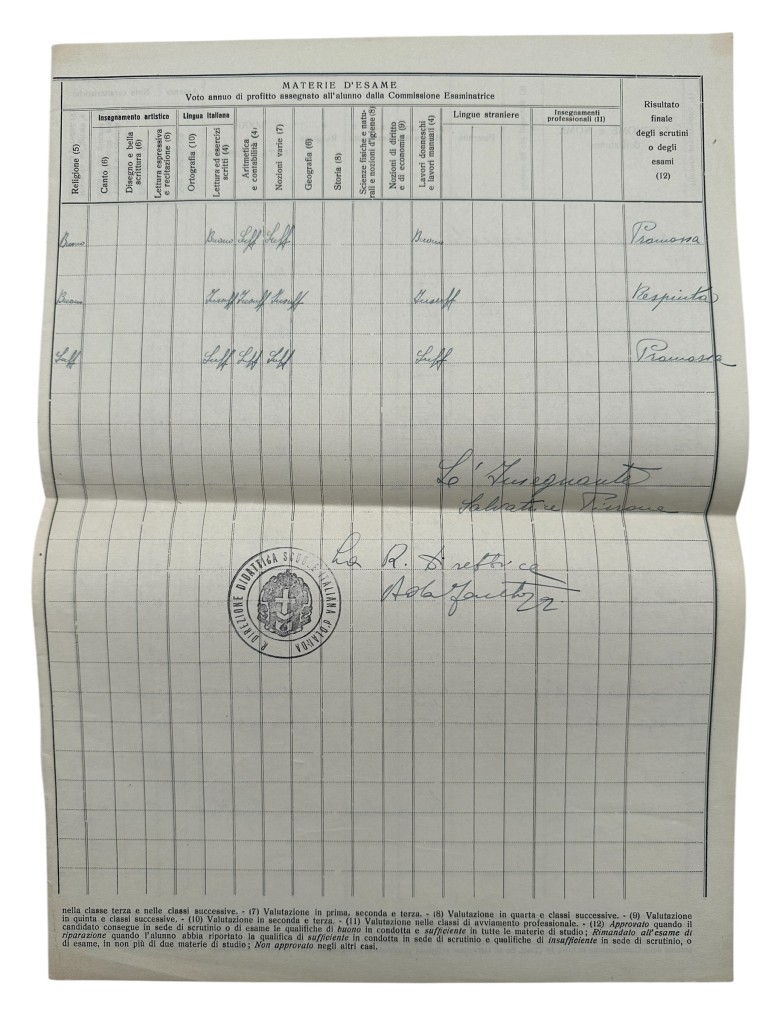 MATERIE D'ESAME
Voto annuo di profitto assegnato all'alunno dalla Commissione Esaminatrice
Religione (5)
Insegnamento artistico
Canto (6)
Disegno e bella scrittura (6)
Lettura espressiva e recitazione (6)
Lingua italiana
Ortografia (10)
Lettura ed esercizi scritti (4)
Aritmetica e contabilità (4)
Nozioni varie (7)
Geografia (6)
Storia (8)
Scienze fisiche e naturali e nozioni d'igiene (8)
Nozioni di diritto e di economia (9)
Lavori donneschi e lavori manuali (4)
Lingue straniere
Insegnamenti professionali (11)
Risultato
finale
degli scrutini
o degli
esami
(12)
Buono Buono Suff Suff Buono Promossa
Buono Insuff Insuff Insuff Insuff Respinta
Suff Suff Suff Suff Suff Promossa
L'Insegnante
Salvatore
La R. Direttrice
Ada
R. DIREZIONE DIDATTICA SCUOLE ITALIANA D'OLANDA
nella classe terza e nelle classi successive. - (7) Valutazione in prima, seconda e terza. - (8) Valutazione in quarta e classi successive. - (9) Valutazione
in quinta e classi successive. - (10) Valutazione in seconda e terza. - (11) Valutazione nelle classi di avviamento professionale. - (12) Approvato quando il
candidato consegue in sede di scrutinio o di esame le qualifiche di buono in condotta e sufficiente in tutte le materie di studio; Rimandato all'esame di
riparazione quando l'alunno abbia riportato la qualifica di sufficiente in condotta in sede di scrutinio e qualifiche di insufficiente in sede di scrutinio, o
di esame, in non più di due materie di studio; Non approvato negli altri casi.